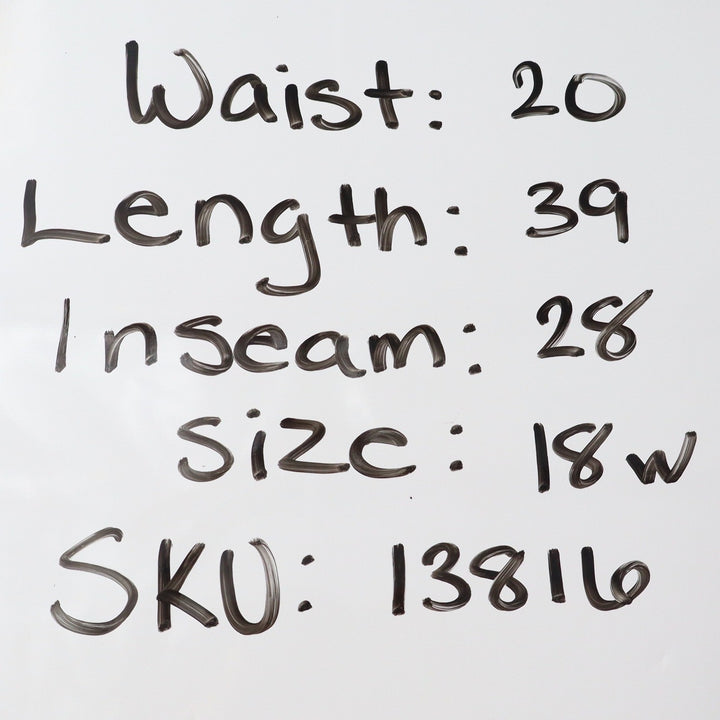 Waist: 20
Length: 39
Inseam: 28
Size: 18w
SKU: 13816